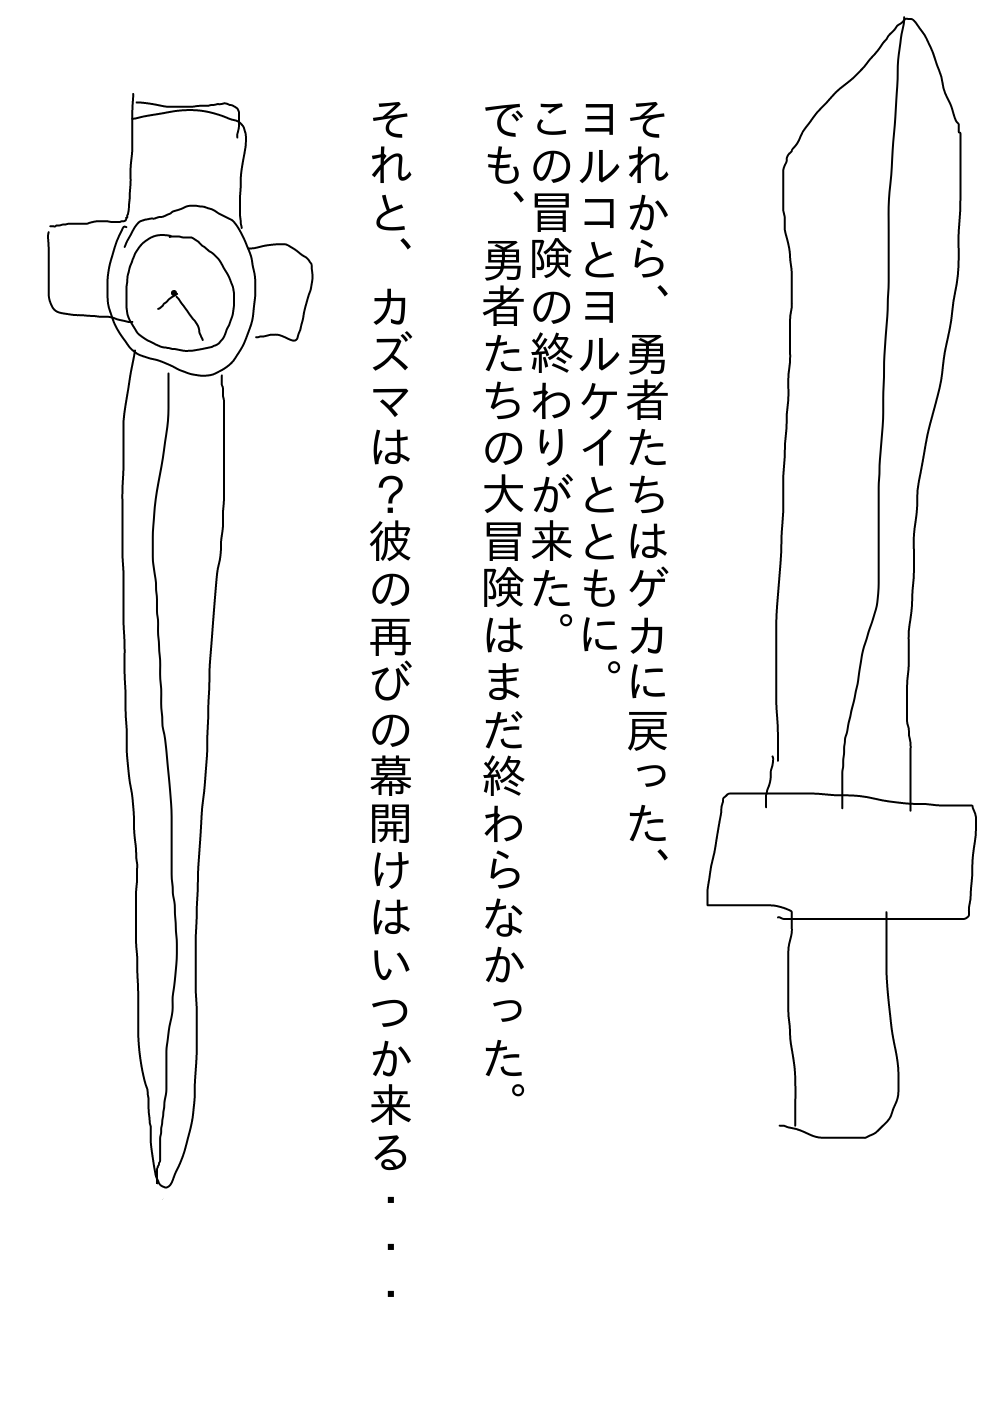 それから、勇者たちはゲカに戻った、
ヨルコとヨルケイとともに。
この冒険の終わりが来た。
でも、勇者たちの大冒険はまだ終わらなかった。
それと、カズマは？彼の再びの幕開けはいつか来る・・・